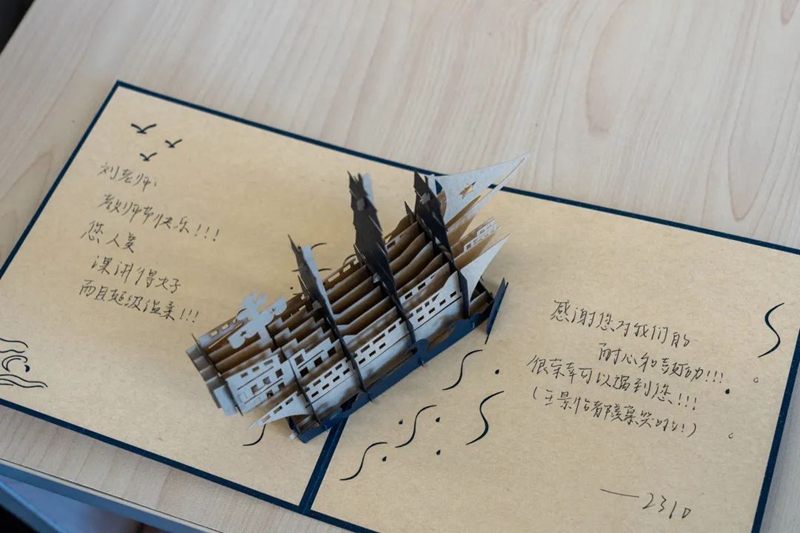 刘老师:
教师节快乐!!!
您人美
课讲得好
而且超级温柔!!!
感谢您对我们的
耐心和帮助!!!
很荣幸可以遇到您!!!
——2310